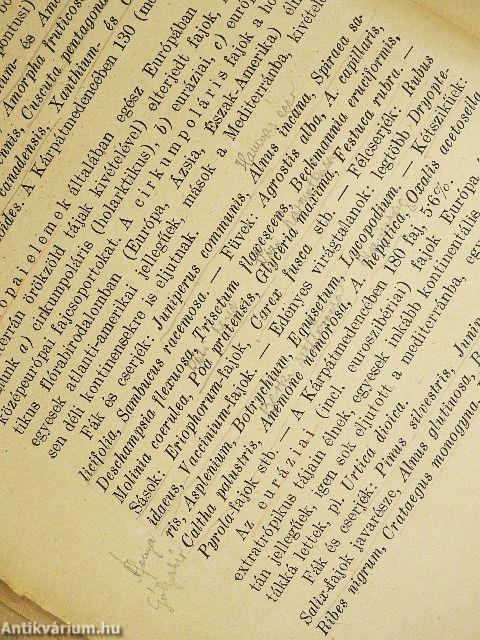 pontusi)
ium- és Am
Amorpha fruticos
ennis, Cuscuta pentagona
canadensis, Xanthium és C
oides. A Kárpátmedencében 130 (me
opai elemek általában egész Európában
terán örökzöld tájak kivételével) elterjedt fajok,
unk a) cirkumpoláris (holarktikus), b) euráziai, c) euró
középeurópai fajcsoportokat. A cirkumpoláris fajok a ho
tikus flórabirodalomban (Európa, Ázsia, Észak-Amerika) éln
egyesek atlanti-amerikai jellegűek, mások a Mediterránba, kivétele
sen déli kontinensekre is eljutnak.
Fák és cserjék: Juniperus communis, Alnus incana, Spiraea sa-
licifolia, Sambucus racemosa. — Füvek: Agrostis alba, A. capillaris,
Deschampsia flexuosa, Trisetum flavescens, Beckmannia eruciformis,
Molinia coerulea, Poa pratensis, Glyceria maxima, Festuca rubra. —
Sások: Eriophorum-fajok, Carex fusca stb. — Félcserjék: Rubus
idaeus, Vaccinium-fajok. — Edényes virágtalanok: legtöbb Dryopte-
ris, Asplenium, Botrychium, Equisetum, Lycopodium. — Kétszikűek:
Caltha palustris, Anemone nemorosa, A. hepatica, Oxalis acetosella
Pyrola-fajok stb. — A Kárpátmedencében 180 faj, 56%.
Az euráziai (incl. euroszibériai) fajok Európa
extratrópikus tájain élnek, egyesek inkább kontinentális
tán jellegűek, igen sok eljutott a mediterránba, egy
tákká lettek, pl. Urtica dioica.
Fák és cserjék: Pinus silvestris, Junip
Salix-fajok javarésze, Alnus glutinosa, B
Ribes nigrum, Crataegus monogyna,
Antikvárium.hu